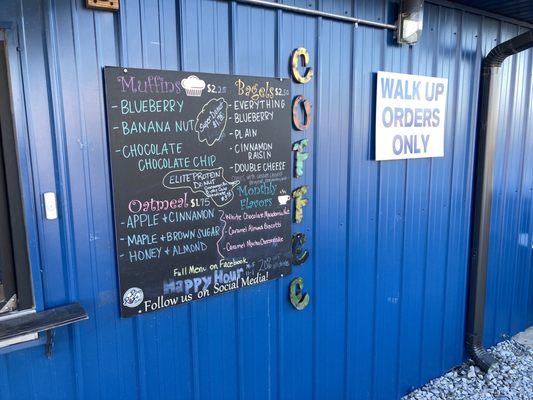 Muffins $2.25
- BLUEBERRY
- BANANA NUT
- CHOCOLATE
CHOCOLATE CHIP
ELITE PROTEIN
DONUT
Oatmeal $1.75
- APPLE + CINNAMON
- MAPLE + BROWN SUGAR
- HONEY + ALMOND
Bagels $2.50
EVERYTHING
- BLUEBERRY
- PLAIN
- CINNAMON
RAISIN
- DOUBLE CHEESE
Monthly
Flavors
- White Chocolate Macadamia Nut
- Caramel Almond Biscotti
- Caramel Mocha Cheesecake
Full Menu on Facebook
Happy Hour
M-F
Follow us on Social Media!
COFFEE
WALK UP
ORDERS
ONLY